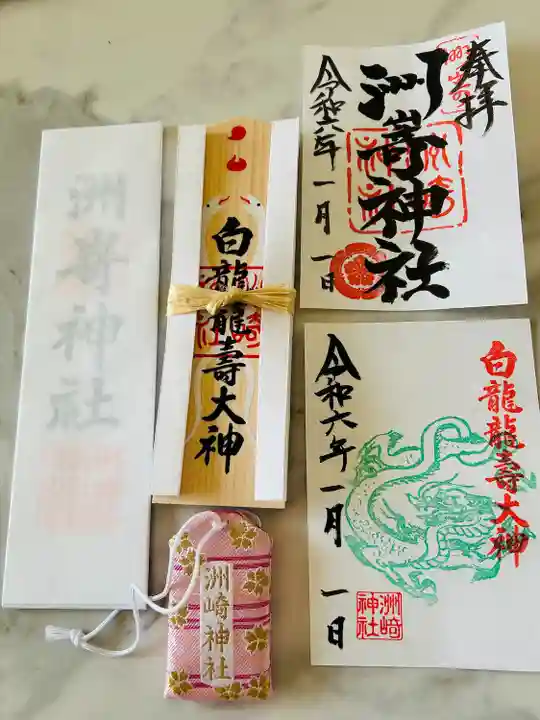 洲嵜神社
白龍龍壽大神
奉拝
洲嵜神社
令和六年一月一日
白龍龍壽大神
令和六年一月一日
洲崎
神社
洲崎神社